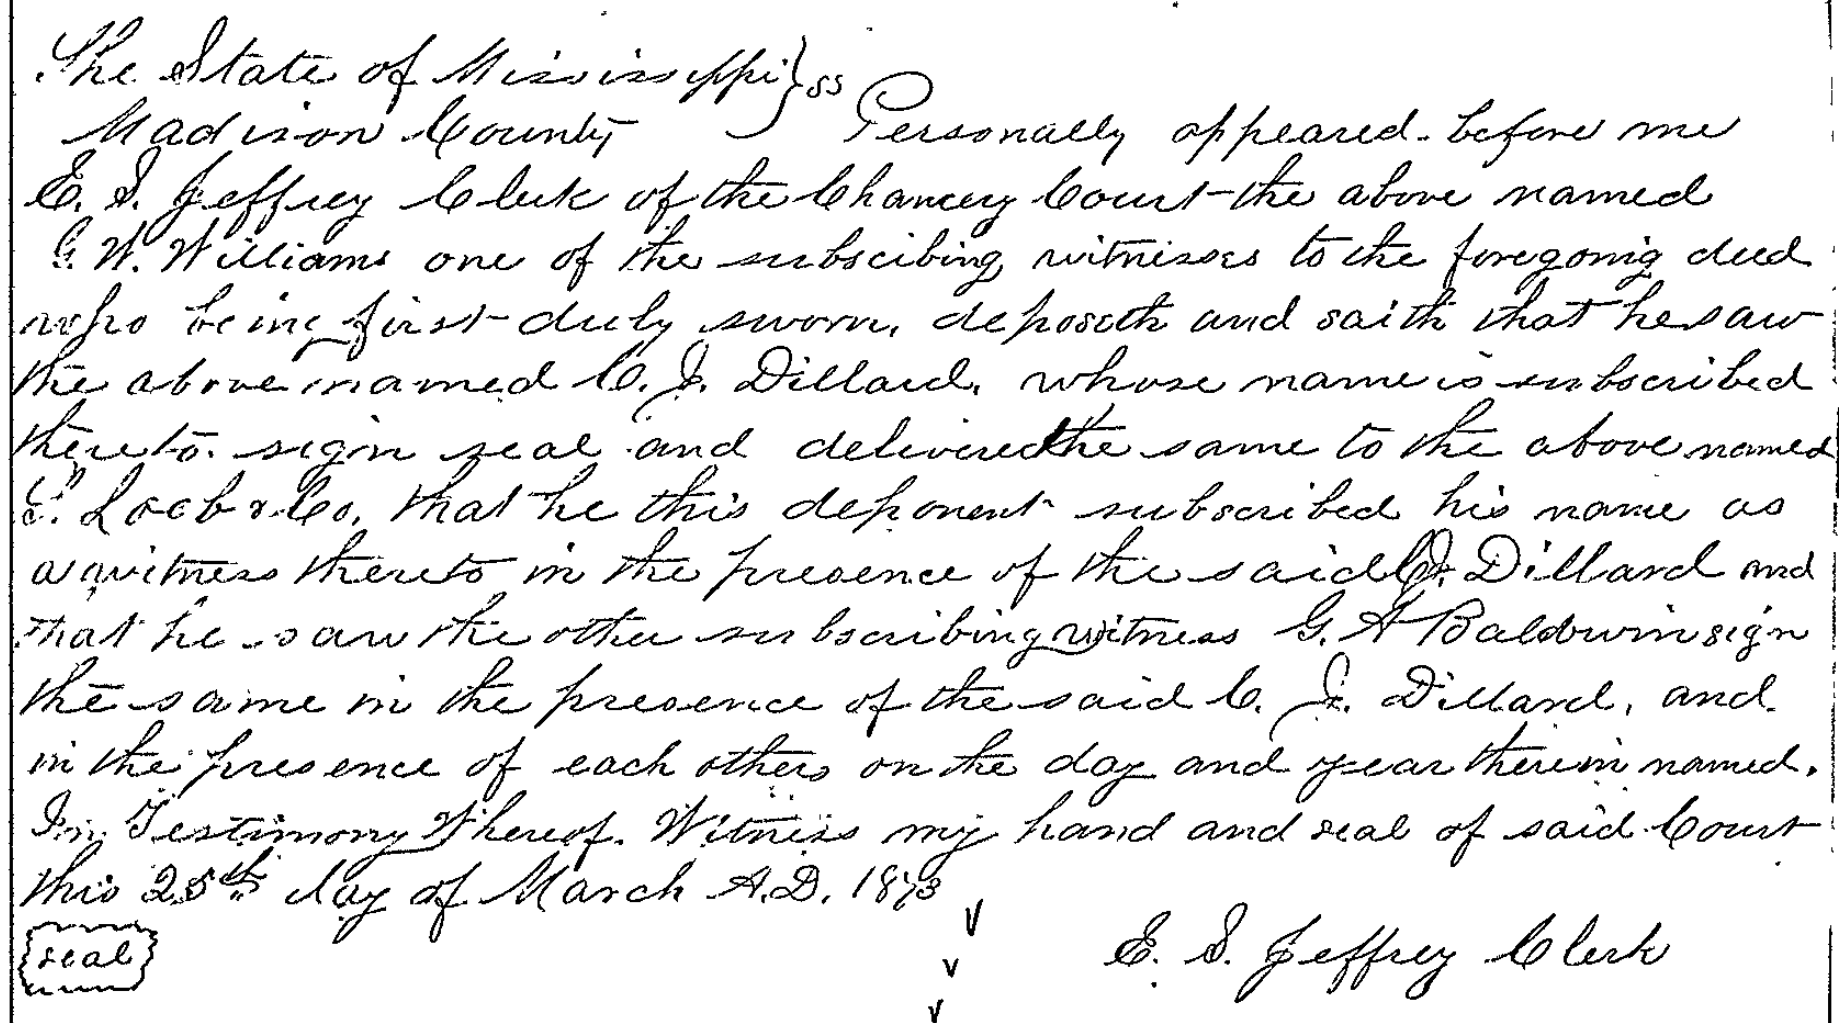 The State of Mississippi } ss
Madison County } Personally appeared before me
E. S. Jeffrey Clerk of the Chancery Court the above named
G. W. Williams one of the subscibing witnesses to the foregoing deed
who being first duly sworn, deposeth and saith that he saw
the above named C. J. Dillard, whose name is subscribed
thereto sign seal and delivered the same to the above named
E. Loeb & Co. that he this deponent subscribed his name as
a witness thereto in the presence of the said C J. Dillard and
that he saw the other subscribing witness G. A Baldwin sign
the same in the presence of the said C. J. Dillard, and
in the presence of each others on the day and year therein named.
In Testimony Whereof. Witness my hand and seal of said Court
this 25th day of March A.D. 1873
seal
E. S. Jeffrey Clerk